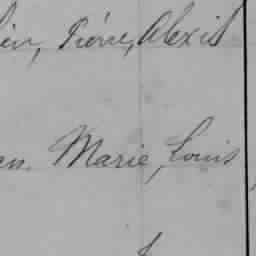 Pierre, Alexis
Marie, Louis